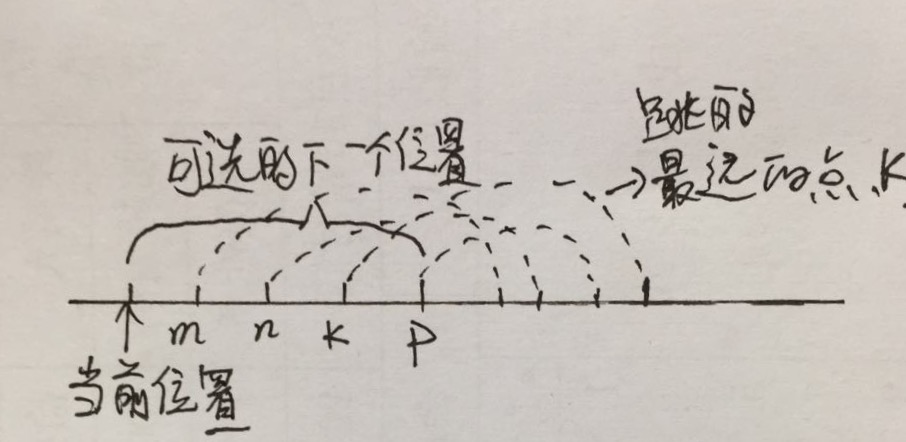 可选的下一个位置
且跳的
最远的点、K
m n K P
当前位置